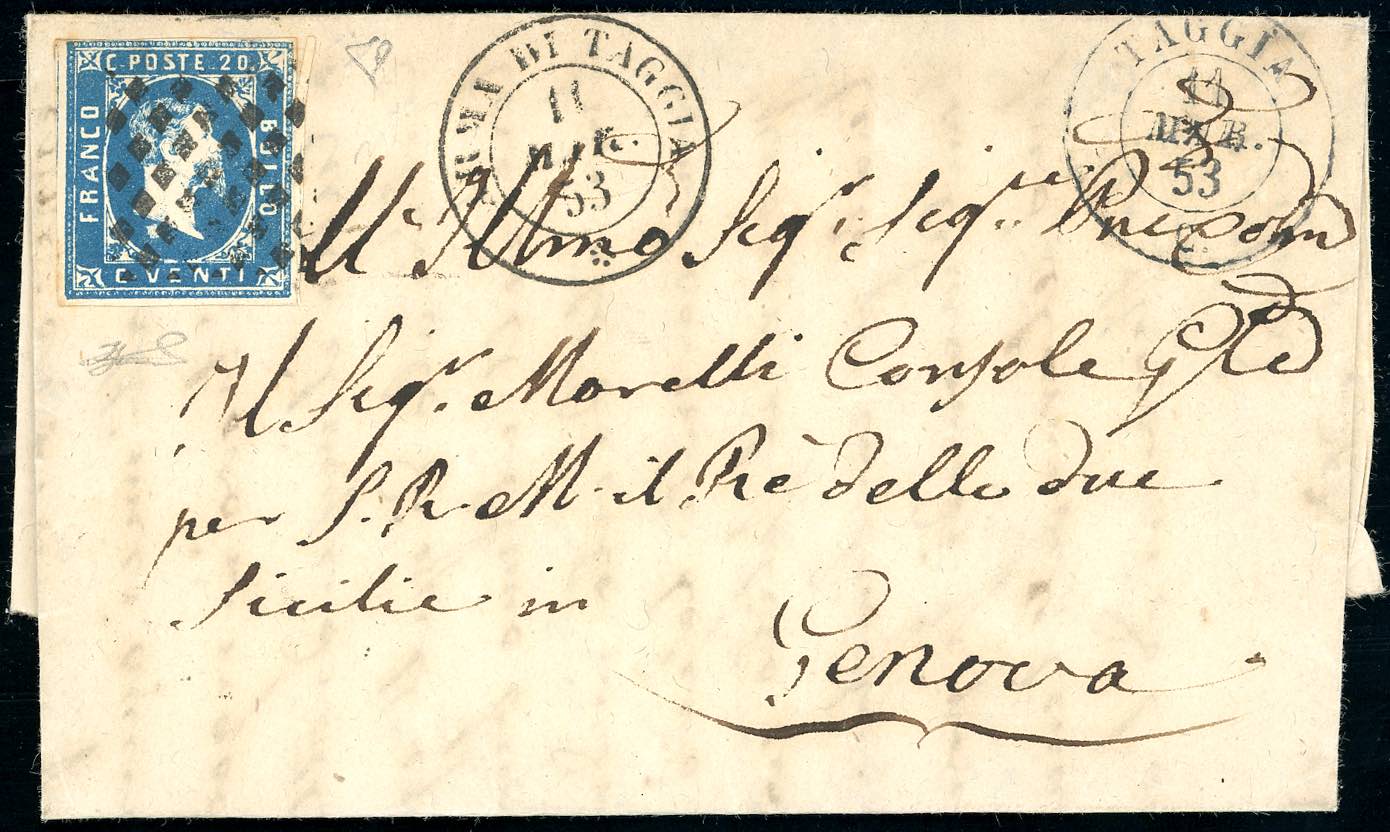 C. POSTE. 20.
FRANCO
BOLLO
C. VENTI
ARMA DI TAGGIA
11
MAR.
53
TAGGIA
11
MAR.
53
All' Illmo Sigr. Sigr.
Al Sigr. Morelli Console Gle
per S. R. M. il Rè delle due
Sicilie in
Genova